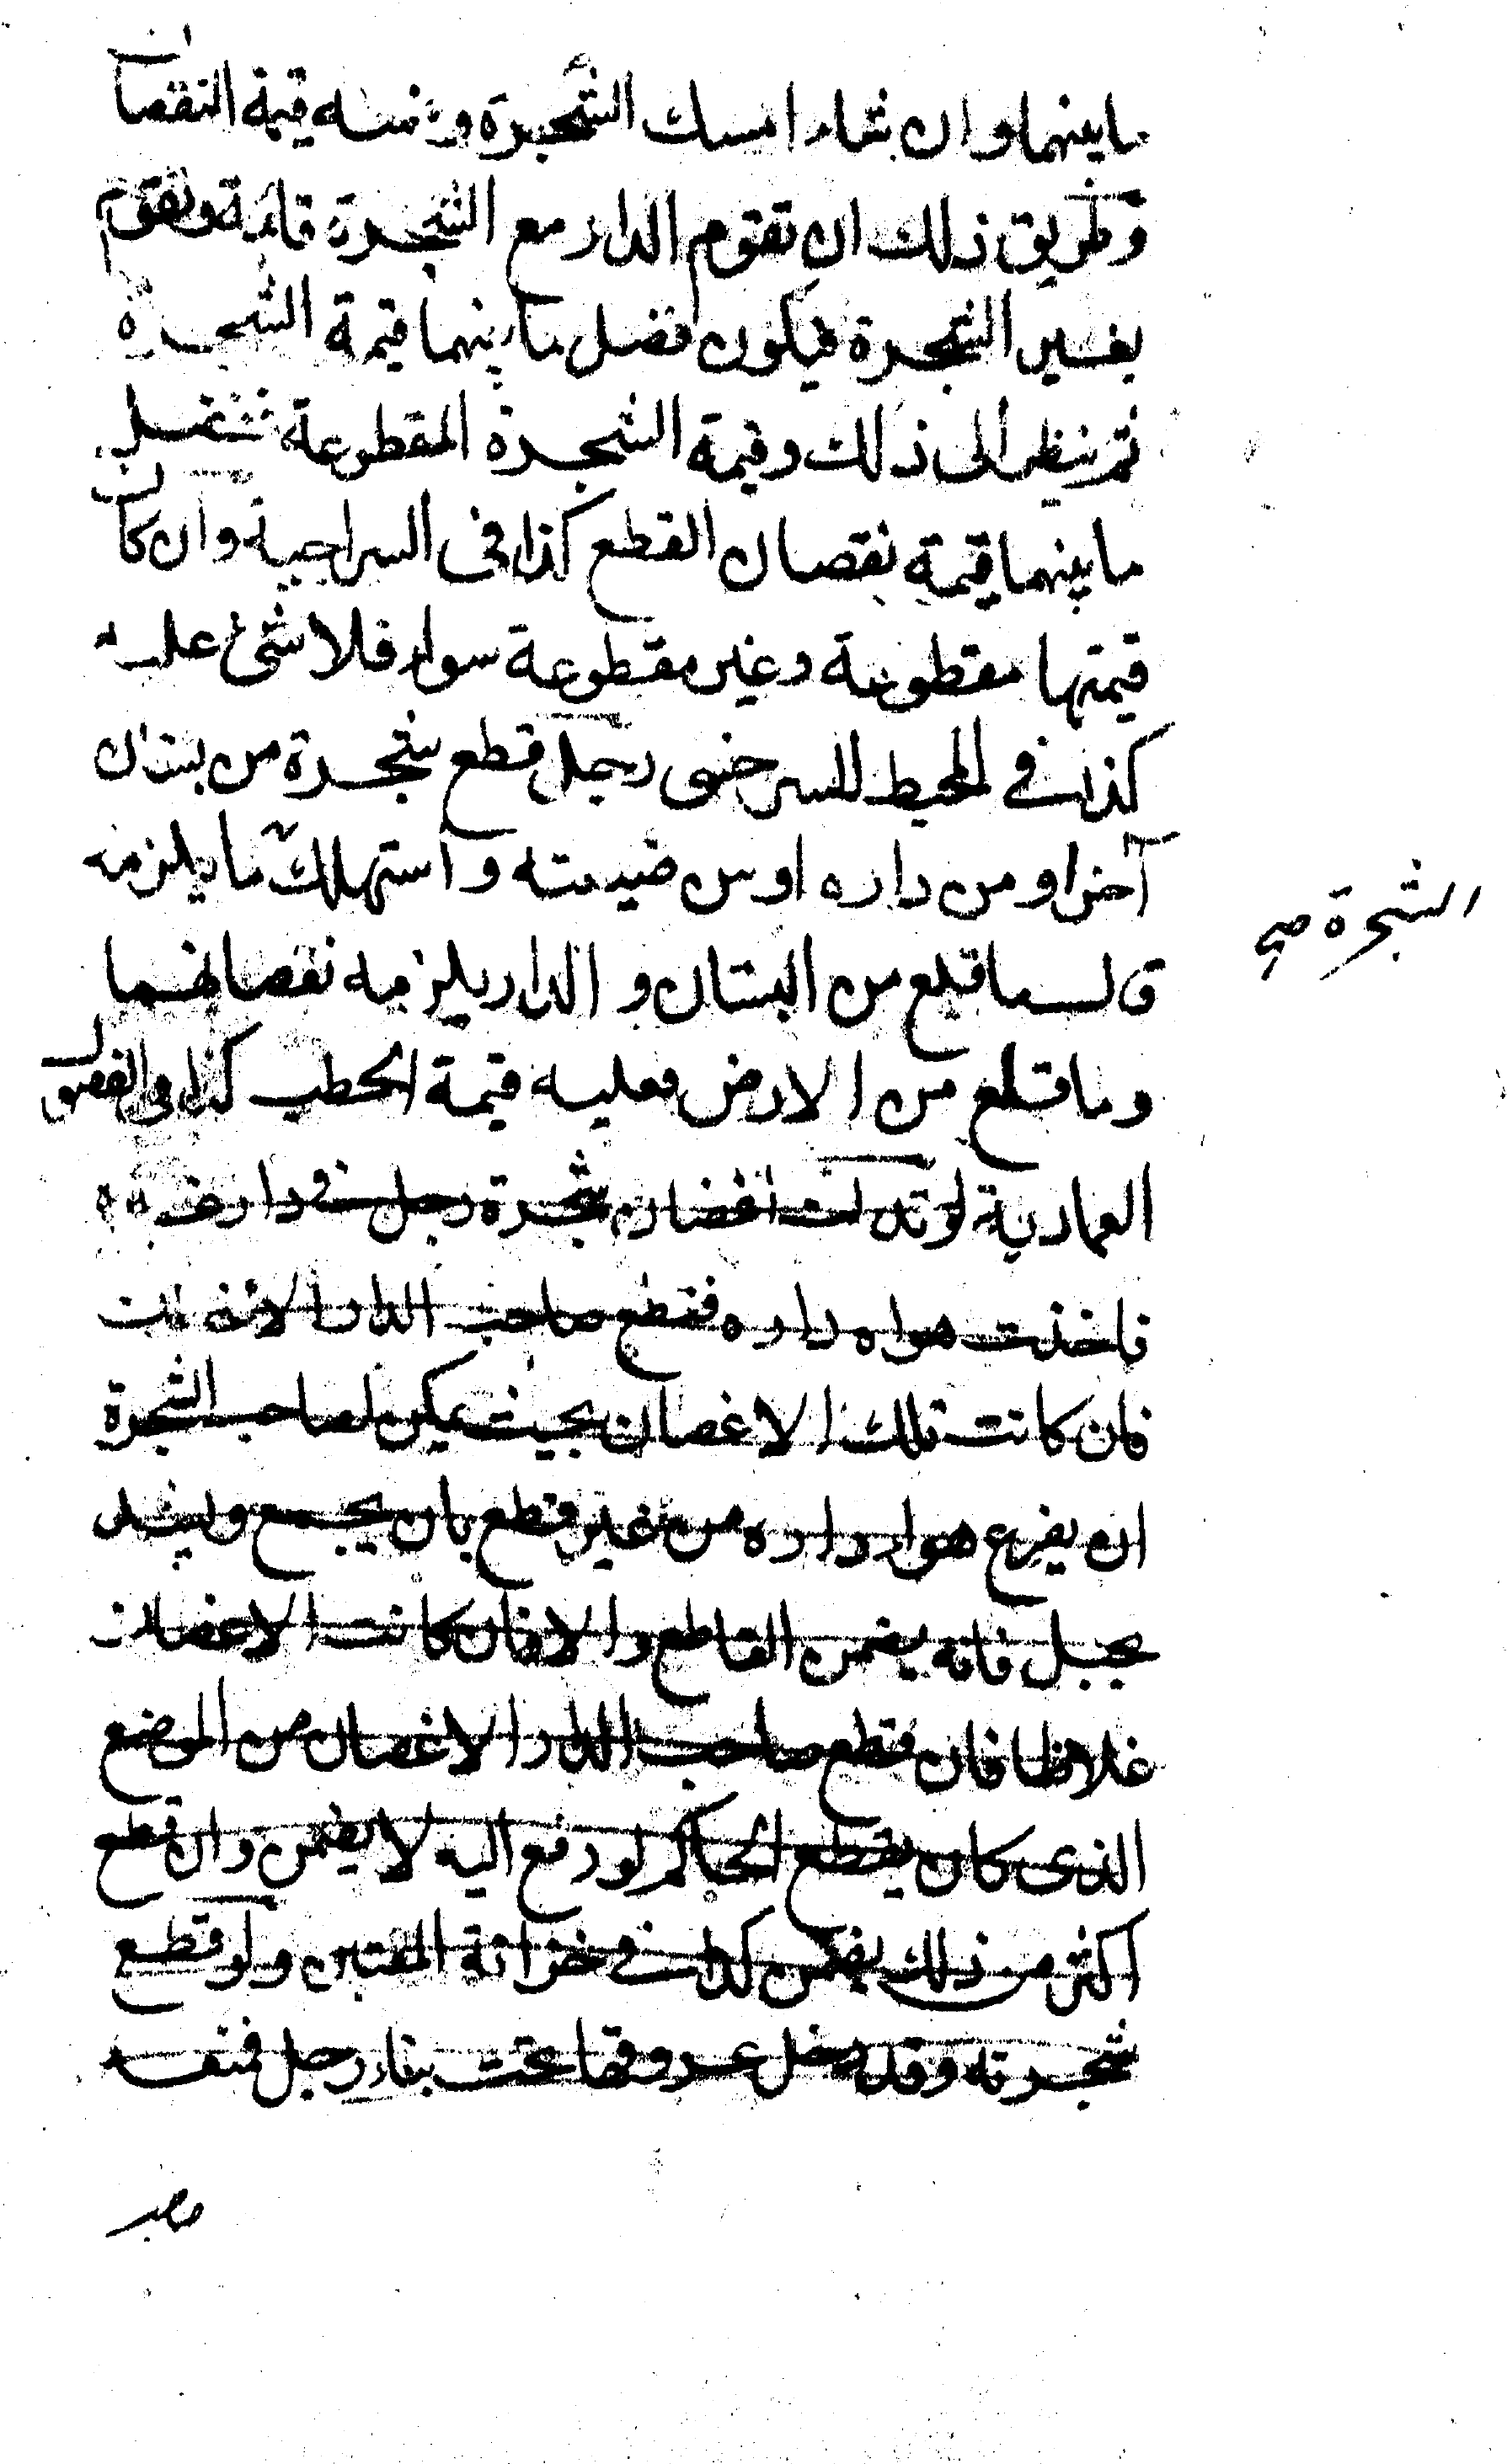 ما بينهما وان شاء امسك الشجرة وضمنه قيمة النقصان
وطريق ذلك ان تقوم الدار مع الشجرة قائمة وتقوم
بغير الشجرة فيكون فضل ما بينهما قيمة الشجرة
ثم ينظر الى ذلك وقيمة الشجرة المقطوعة ففضل
ما بينهما قيمة نقصان القطع كذا فى السراجية وان كان
قيمتها مقطوعة وغير مقطوعة سواء فلا شئ عليه
كذا فى المحيط للسرخسى رجل قطع شجرة من بستان
آخر او من داره او من ضيعته واستهلك ما يلزمه
الشجرة صح
قال ما قلع من البستان و الدار يلزمه نقصانهما
وما قلع من الارض فعليه قيمة الحطب كذا فى الفصول
العمادية لو تدلت اغصان شجرة رجل فى دار
فاخذت هواء داره فقطع صاحب الدار الاغصان
فان كانت تلك الاغصان بحيث يمكن لصاحب الشجرة
ان يفرغ هواء داره من غير قطع بان يجمع ويشد
بحبل فانه يضمن القاطع والا فان كانت الاغصان
غلاظا فان قطع صاحب الدار الاغصان من الموضع
الذى كان يقطع الحاكم لو رفع اليه لا يضمن وان قطع
اكثر من ذلك يضمن كذا فى خزانة المفتين ولو قطع
شجرته وقد دخل عروقها تحت بناء رجل فمنعه